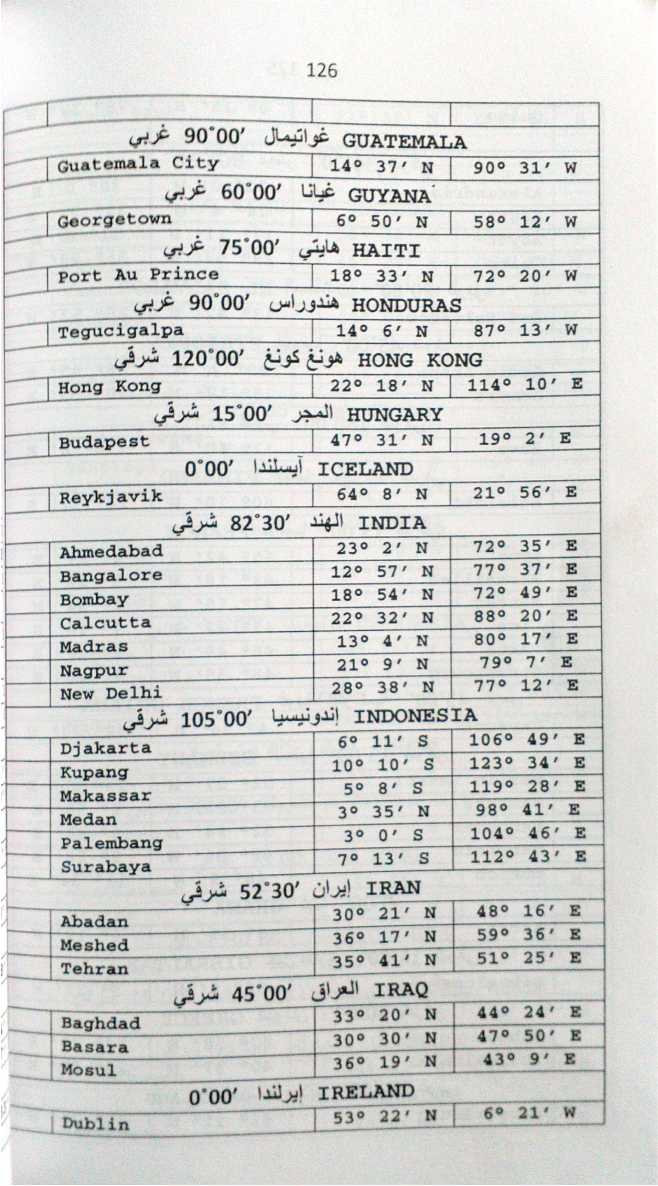 126
غواتيمال 90°00′ غربي GUATEMALA
Guatemala City 14° 37′ N 90° 31′ W
غيانا 60°00′ غربي GUYANA
Georgetown 6° 50′ N 58° 12′ W
هايتي 75°00′ غربي HAITI
Port Au Prince 18° 33′ N 72° 20′ W
هندوراس 90°00′ غربي HONDURAS
Tegucigalpa 14° 6′ N 87° 13′ W
هونغ كونغ 120°00′ شرقي HONG KONG
Hong Kong 22° 18′ N 114° 10′ E
المجر 15°00′ شرقي HUNGARY
Budapest 47° 31′ N 19° 2′ E
آيسلندا 0°00′ ICELAND
Reykjavik 64° 8′ N 21° 56′ E
الهند 82°30′ شرقي INDIA
Ahmedabad 23° 2′ N 72° 35′ E
Bangalore 12° 57′ N 77° 37′ E
Bombay 18° 54′ N 72° 49′ E
Calcutta 22° 32′ N 88° 20′ E
Madras 13° 4′ N 80° 17′ E
Nagpur 21° 9′ N 79° 7′ E
New Delhi 28° 38′ N 77° 12′ E
إندونيسيا 105°00′ شرقي INDONESIA
Djakarta 6° 11′ S 106° 49′ E
Kupang 10° 10′ S 123° 34′ E
Makassar 5° 8′ S 119° 28′ E
Medan 3° 35′ N 98° 41′ E
Palembang 3° 0′ S 104° 46′ E
Surabaya 7° 13′ S 112° 43′ E
إيران 52°30′ شرقي IRAN
Abadan 30° 21′ N 48° 16′ E
Meshed 36° 17′ N 59° 36′ E
Tehran 35° 41′ N 51° 25′ E
العراق 45°00′ شرقي IRAQ
Baghdad 33° 20′ N 44° 24′ E
Basara 30° 30′ N 47° 50′ E
Mosul 36° 19′ N 43° 9′ E
إيرلندا 0°00′ IRELAND
Dublin 53° 22′ N 6° 21′ W